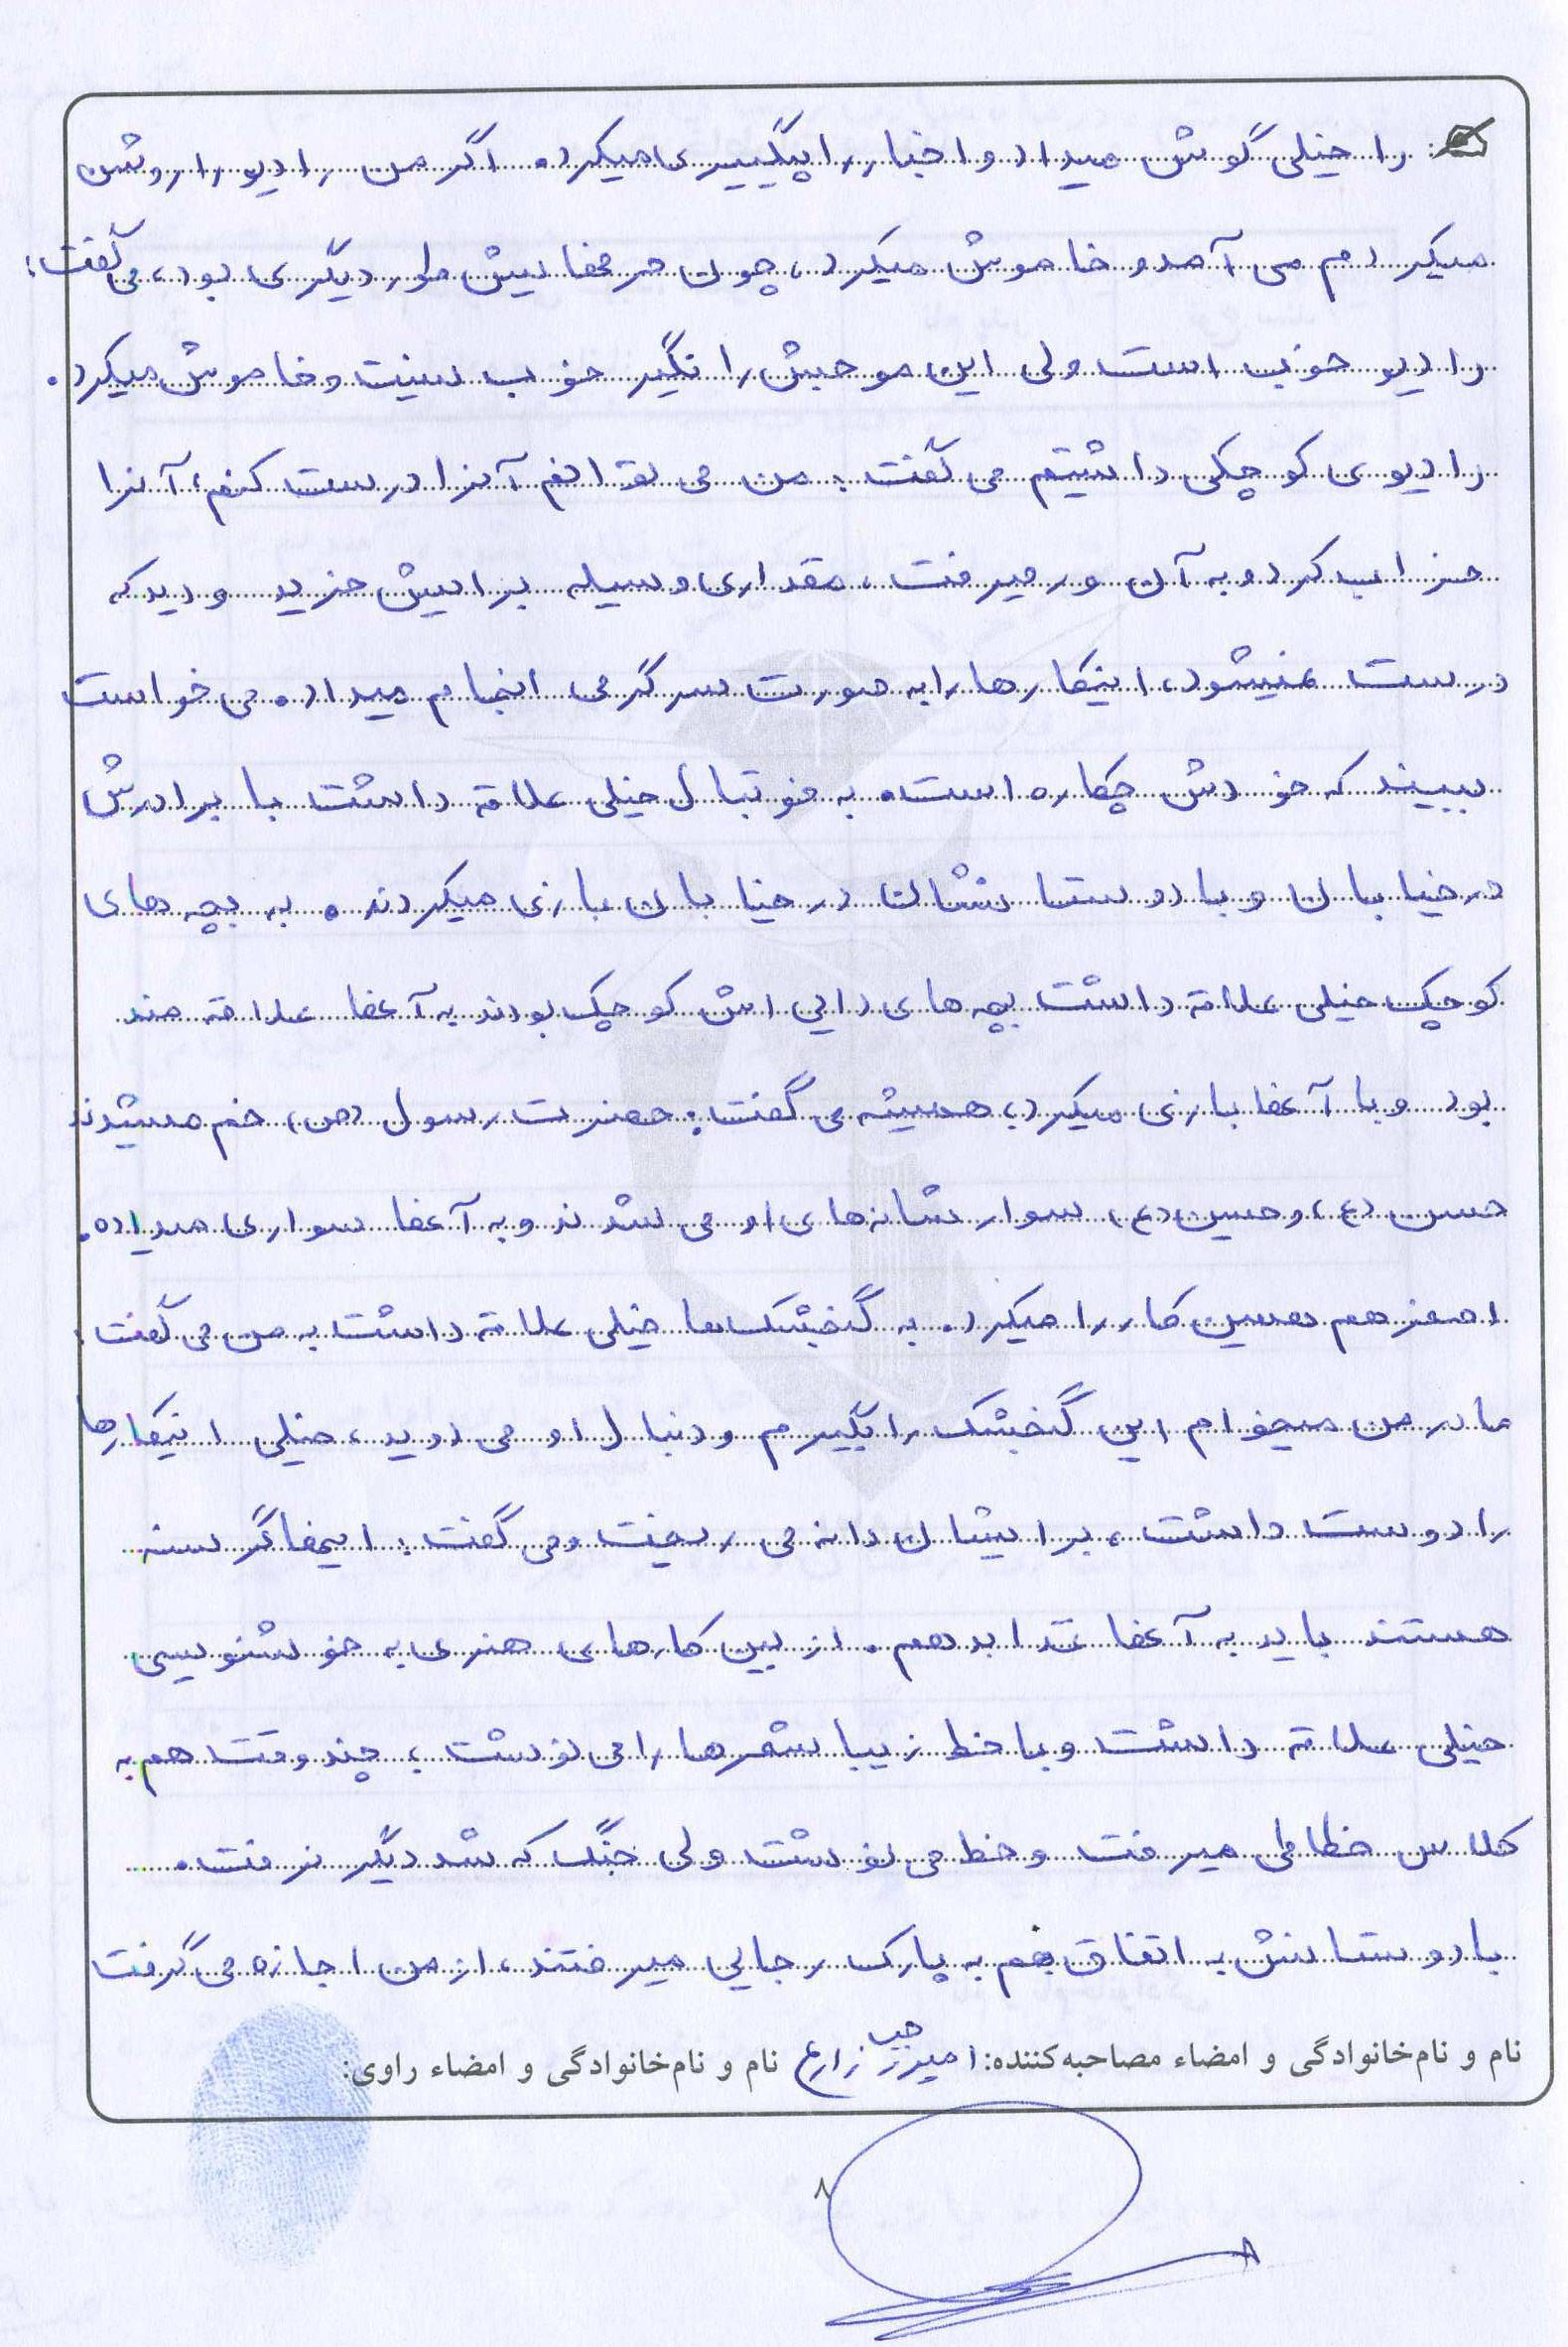 را خیلی گوش میداد و اخبار را پیگیری میکرد. اگر من رادیو را روشن
میکردم می آمد و خاموش میکرد، چون حرفهایش طور دیگری بود، می گفت:
رادیو خوب است ولی این موجش را نگیر خوب نیست و خاموش میکرد.
رادیوی کوچکی داشتیم می گفت: من می توانم آنرا درست کنم، آنرا
خراب کرد و به آن ور میرفت، مقداری وسیله برایش خرید و دید که
درست نمیشود، اینکارها را به صورت سرگرمی انجام میداد. می خواست
ببیند که خودش چکاره است. به فوتبال خیلی علاقه داشت با برادرش
در خیابان و با دوستانشان در خیابان بازی میکردند. به بچه های
کوچک خیلی علاقه داشت بچه های دایی اش کوچک بودند به آنها علاقه مند
بود و با آنها بازی میکرد، همیشه می گفت: حضرت رسول (ص) خم میشدند
حسن (ع) و حسین (ع) سوار شانه های او می شدند و به آنها سواری میداد.
اصغر هم همین کار را میکرد. به گنجشک ها خیلی علاقه داشت به من می گفت:
مادر من میخوام این گنجشک را بگیرم و دنبال او می دوید، خیلی اینکارها
را دوست داشت، برایشان دانه می ریخت و می گفت: اینها گرسنه
هستند باید به آنها غذا بدهم. از بین کارهای هنری به خوشنویسی
خیلی علاقه داشت و با خط زیبا شعرها را می نوشت، چند وقت هم به
کلاس خطاطی میرفت و خط می نوشت ولی جنگ که شد دیگر نرفت.
با دوستانش به اتفاق هم به پارک رجایی میرفتند، از من اجازه می گرفت
نام و نام‌خانوادگی و امضاء مصاحبه‌کننده: زارع نام و نام‌خانوادگی و امضاء راوی:
۸